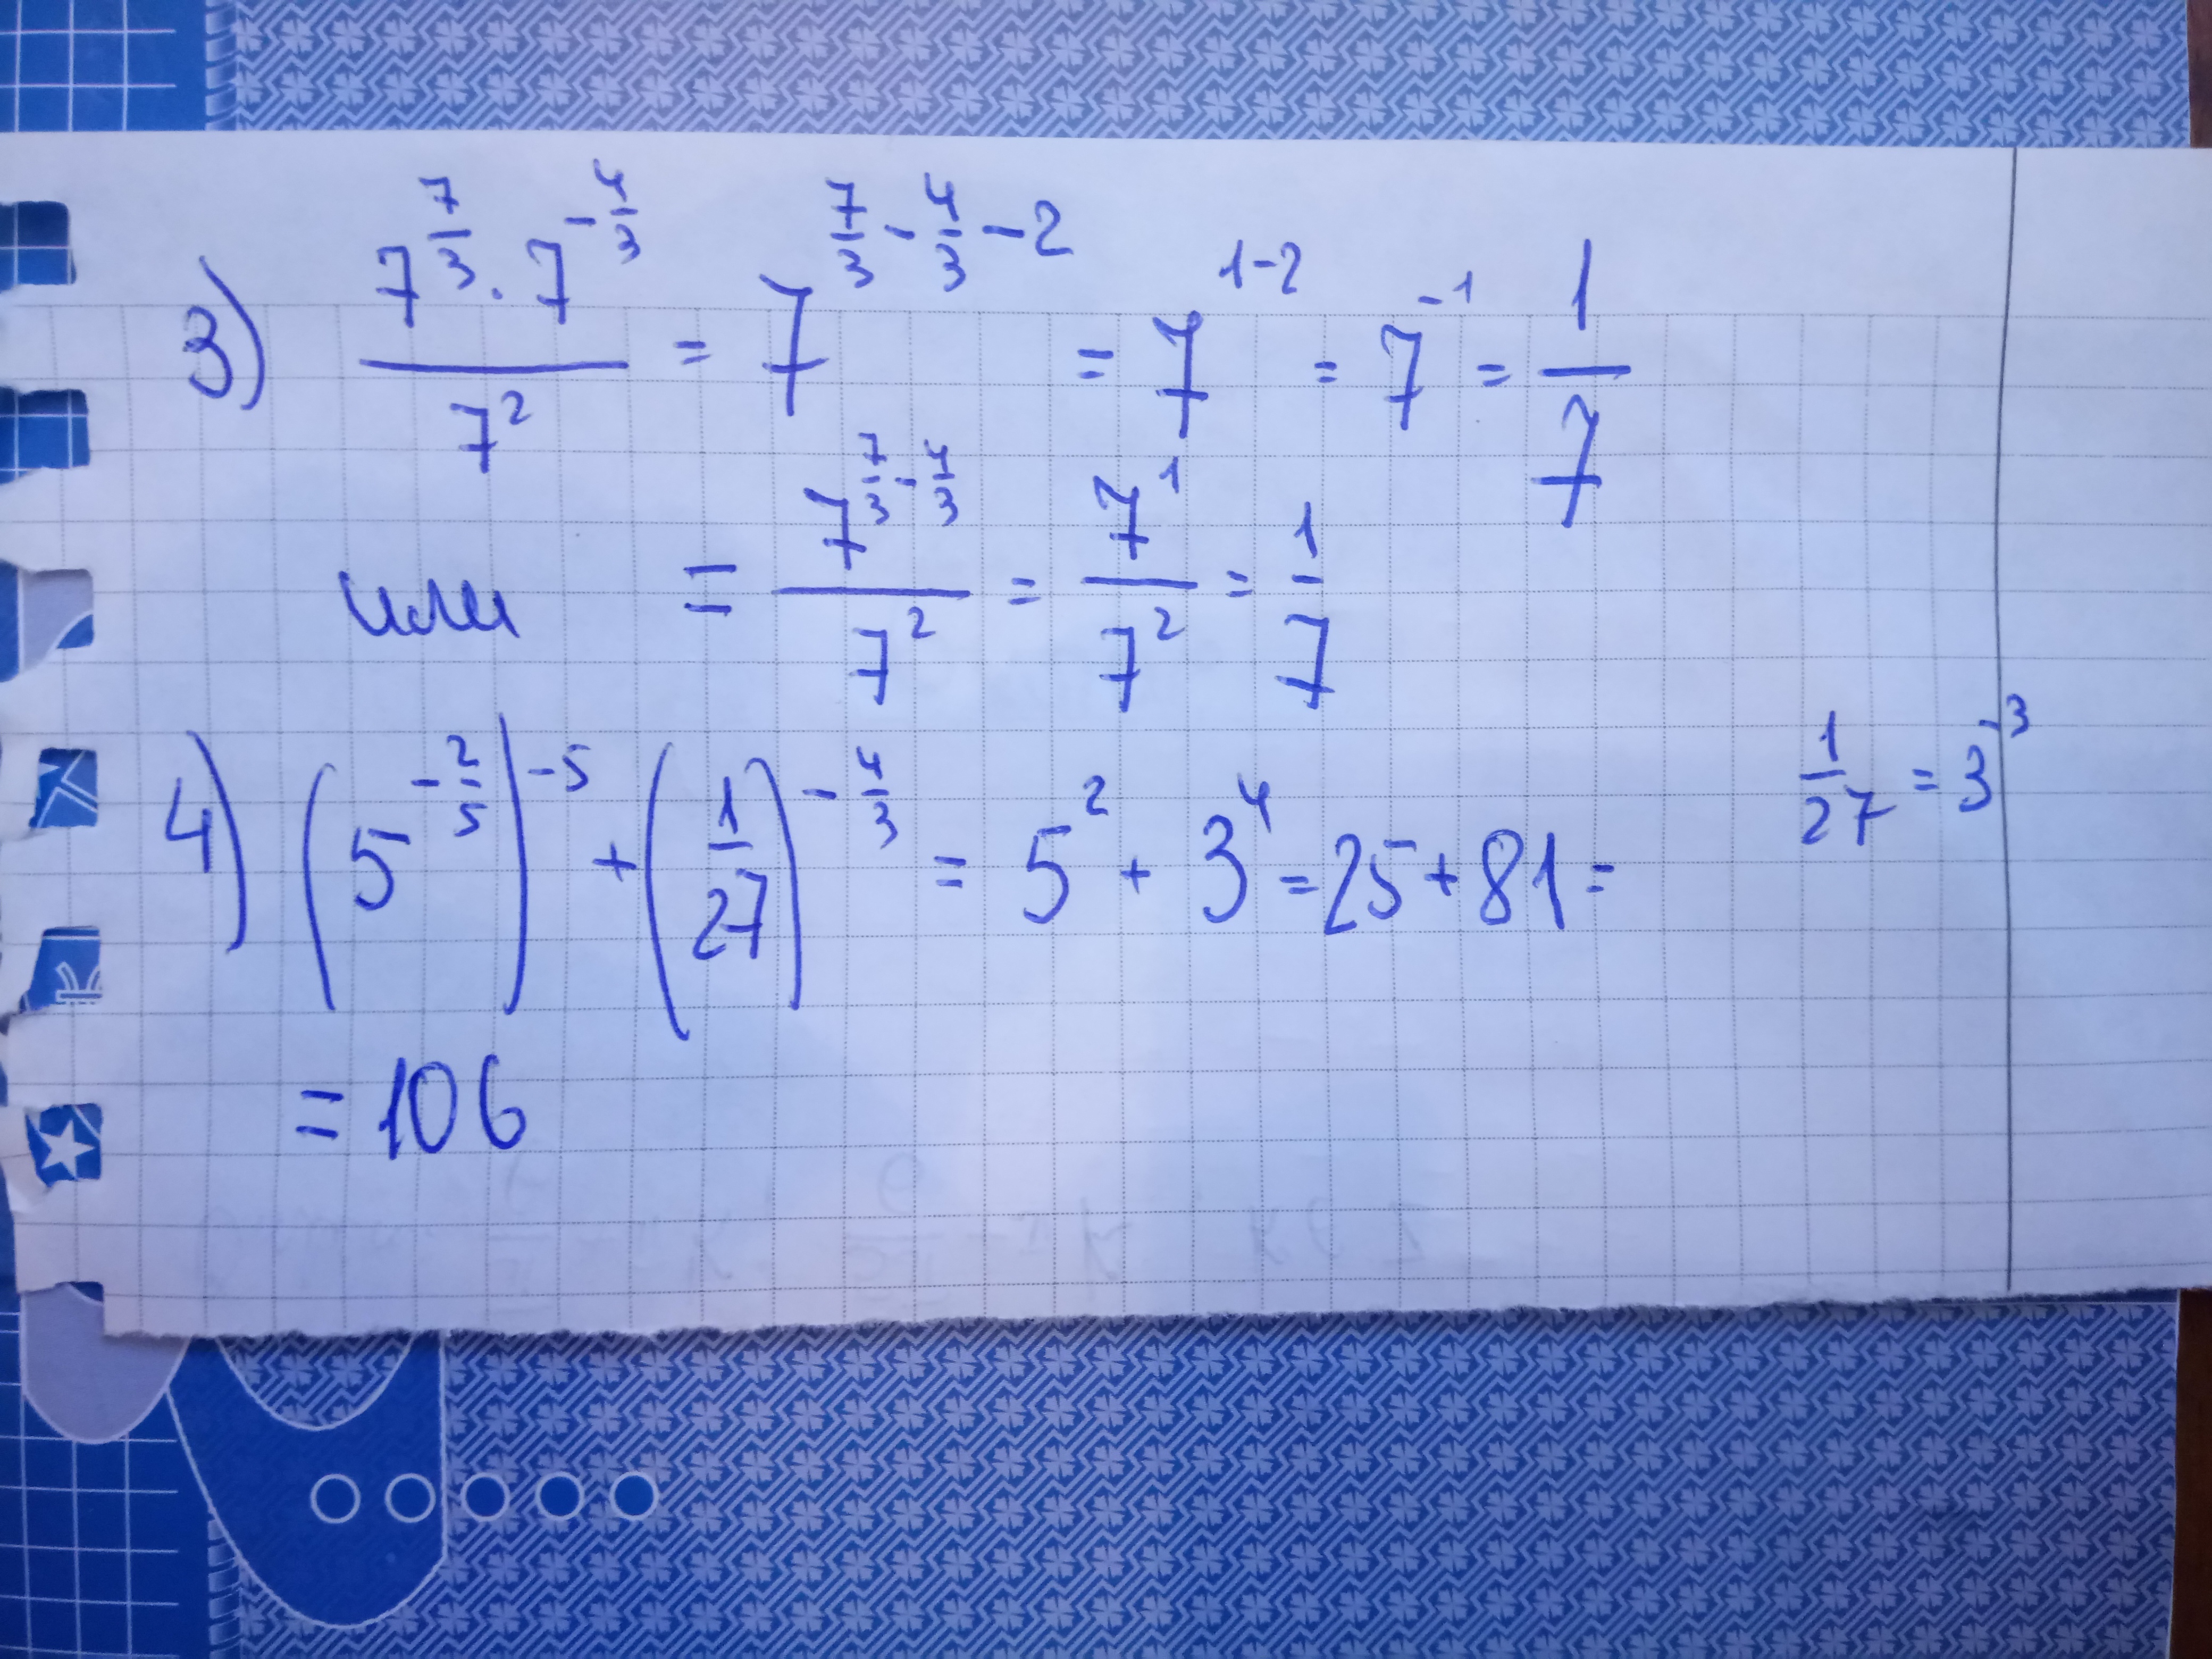 3) \frac{7^{\frac{7}{3}} \cdot 7^{-\frac{4}{3}}}{7^2} = 7^{\frac{7}{3} - \frac{4}{3} - 2} = 7^{1-2} = 7^{-1} = \frac{1}{7}
или = \frac{7^{\frac{7}{3} - \frac{4}{3}}}{7^2} = \frac{7^1}{7^2} = \frac{1}{7}
4) \left(5^{-\frac{2}{5}}\right)^{-5} + \left(\frac{1}{27}\right)^{-\frac{4}{3}} = 5^2 + 3^4 = 25 + 81 =
\frac{1}{27} = 3^{-3}
= 106